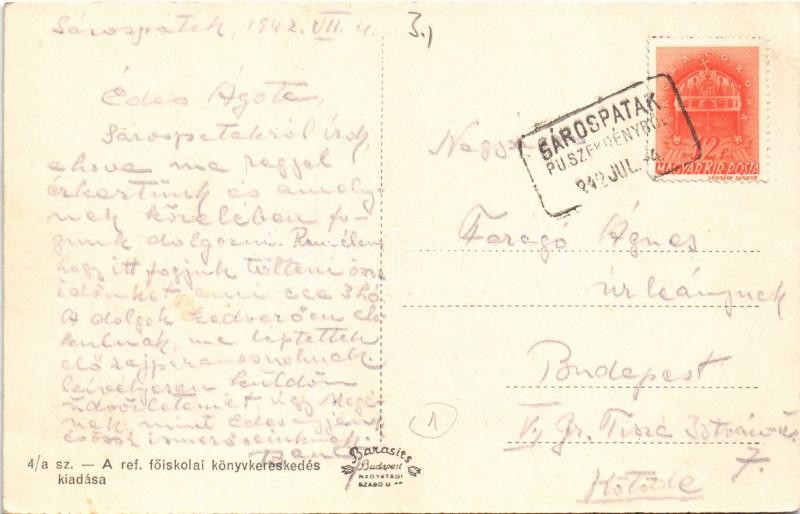 Sárospatak, 1942. VII. 4.
3.)
Édes Ágota,
Sárospatakról írok,
ahova ma reggel
érkeztünk és amely-
nek közelében fo-
gunk dolgozni. Remélem
hogy itt fogjuk tölteni össz
időnket ami cca 3 hó
A dolgok kedvezően ala
kulnak, ma léptettek
elő
szívélyesen küldöm
üdvözletemet, úgy
nek, mint édesanyjának
és össz ismerőseinknek.
SÁROSPATAK
PU.SZEKRÉNYBŐL
942 JUL.
MAGYAR KIR. POSTA
Faragó Ágnes
úrleánynek
Budapest
V, Gr. Tisza István u.
7.
1
4/a sz. — A ref. főiskolai könyvkereskedés
kiadása
Barasits
Budapest
NAGYATÁDI
SZABÓ U